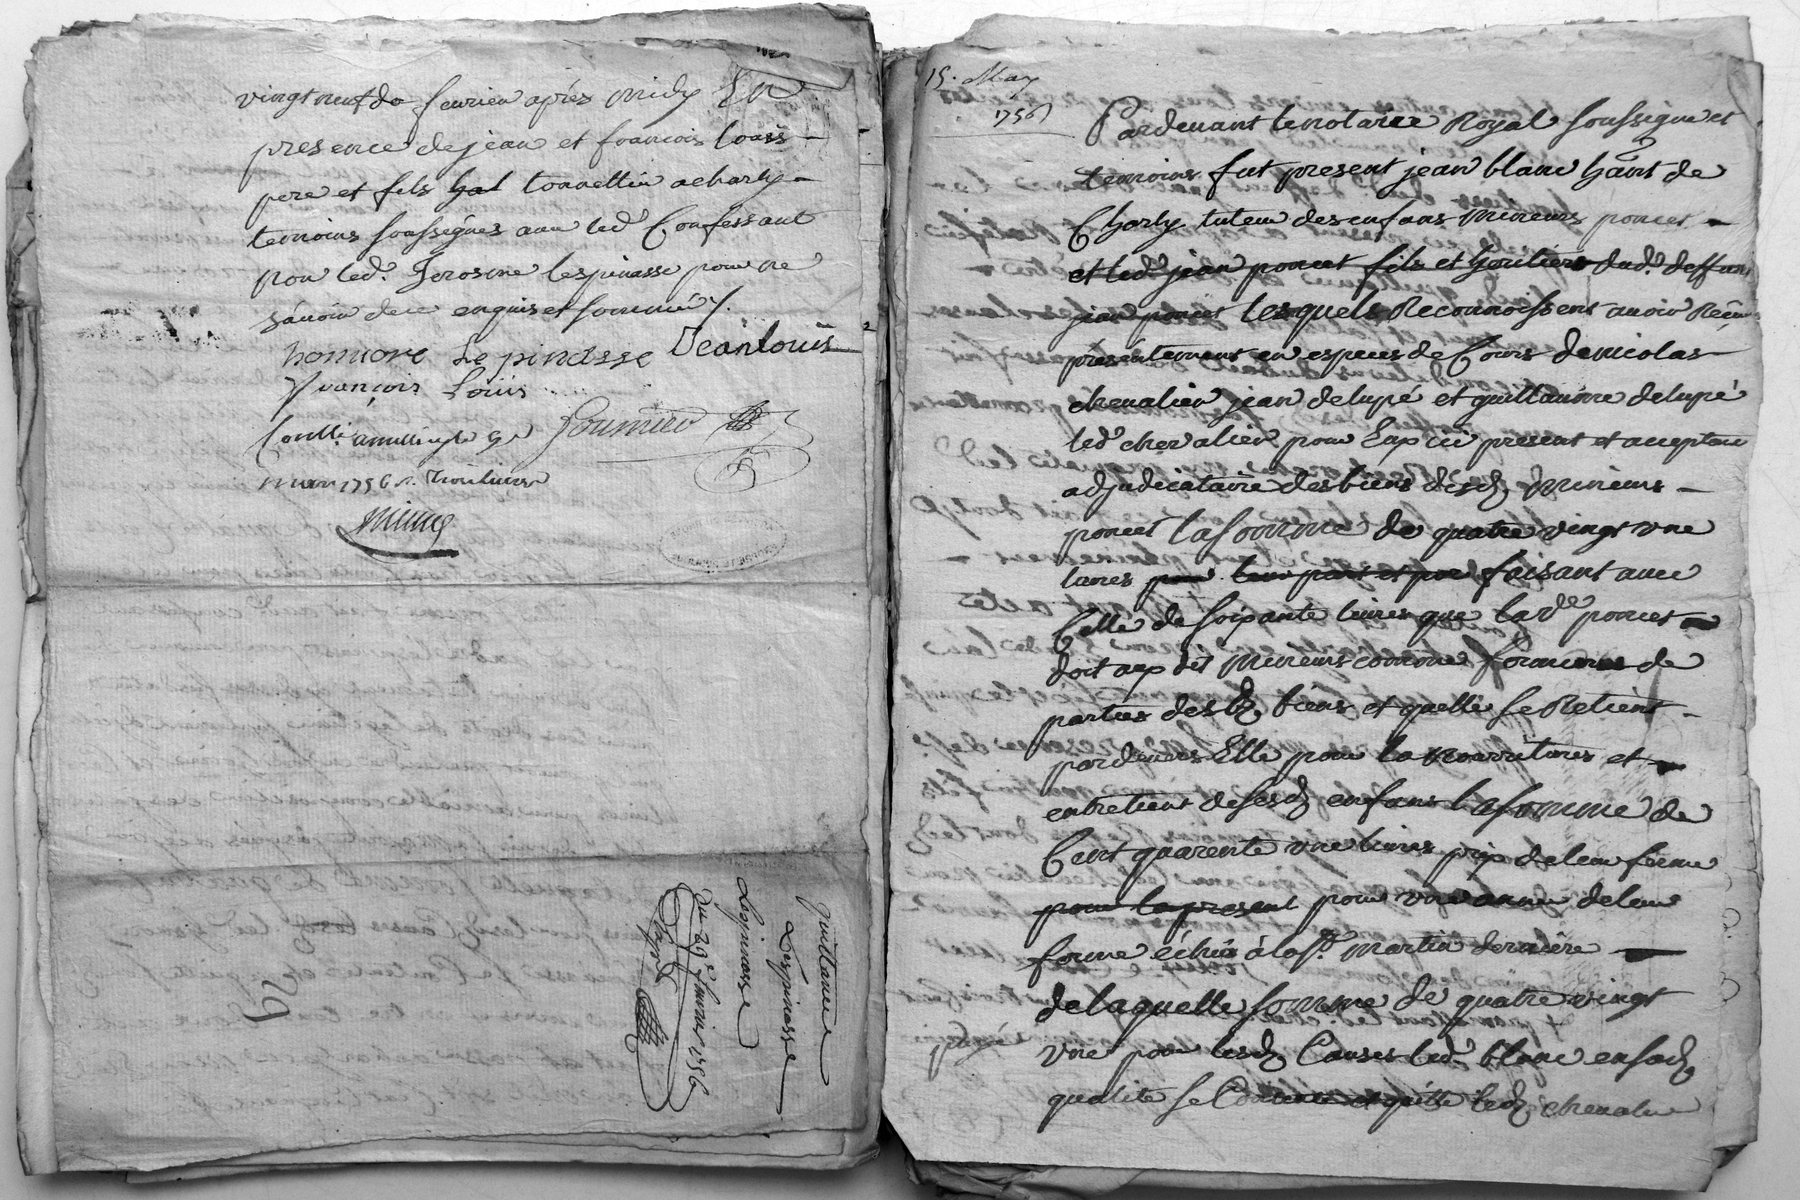 vingt neuf de fevrier après midy En
presence de jean et francois louis
pere et fils tonnellier a charly
temoins soussignés avec led. Confessant
non led. lespinasse pour ne
sçavoir de ce enquis et sommé
honnore Le pinasse Jean louis
francois Louis
Conllé a le 9e fournier
mars 1756
guillaume
Lespinasse
Lespinasse
du 29e fevrier 1756
payé
29
15. May
1756
Pardevant le notaire Royal soussigné et
temoins fut present jean blanc hant de
Charly tuteur des enfans mineurs poncet
et led. jean poncet fils et heritiers dud. deffunt
jean poncet lesquels Reconnoissent avoir Recu
presentement en especes de Cours de nicolas
chevalier jean delupé et guillaume delupé
led. chevalier pour Eux ici present et acceptant
adjudicataire des biens desd. Mineurs
poncet la somme de quatre vingt une
livres pour leur part et por faisant avec
Celle de soixante livres que la ve. poncet
doit aux dts Mineurs comme de
parties desd. biens et quelle se Retient
pardevers Elle pour la Nourritures et
entretient de sesd. enfans la somme de
Cent quarente une livres prix de leur ferme
pour le present pour une année de leur
ferme échüe à la st. martin derniere
de laquelle somme de quatre vingt
une pour lesd. Causes led. blanc en sad.
qualité se Contente et quitte led. chevalier